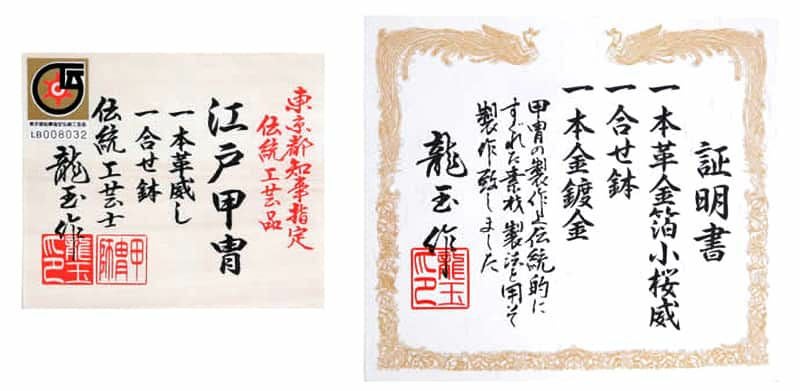 伝
LB008032
東京都知事指定
伝統工芸品
江戸甲冑
一本革威し
一合せ鉢
伝統工芸士
龍玉作
甲冑師
証明書
一本革金箔小桜威
一合せ鉢
一本金鍍金
甲冑の製作上伝統的に
すぐれた素材製法を用いて
製作致しました
龍玉作